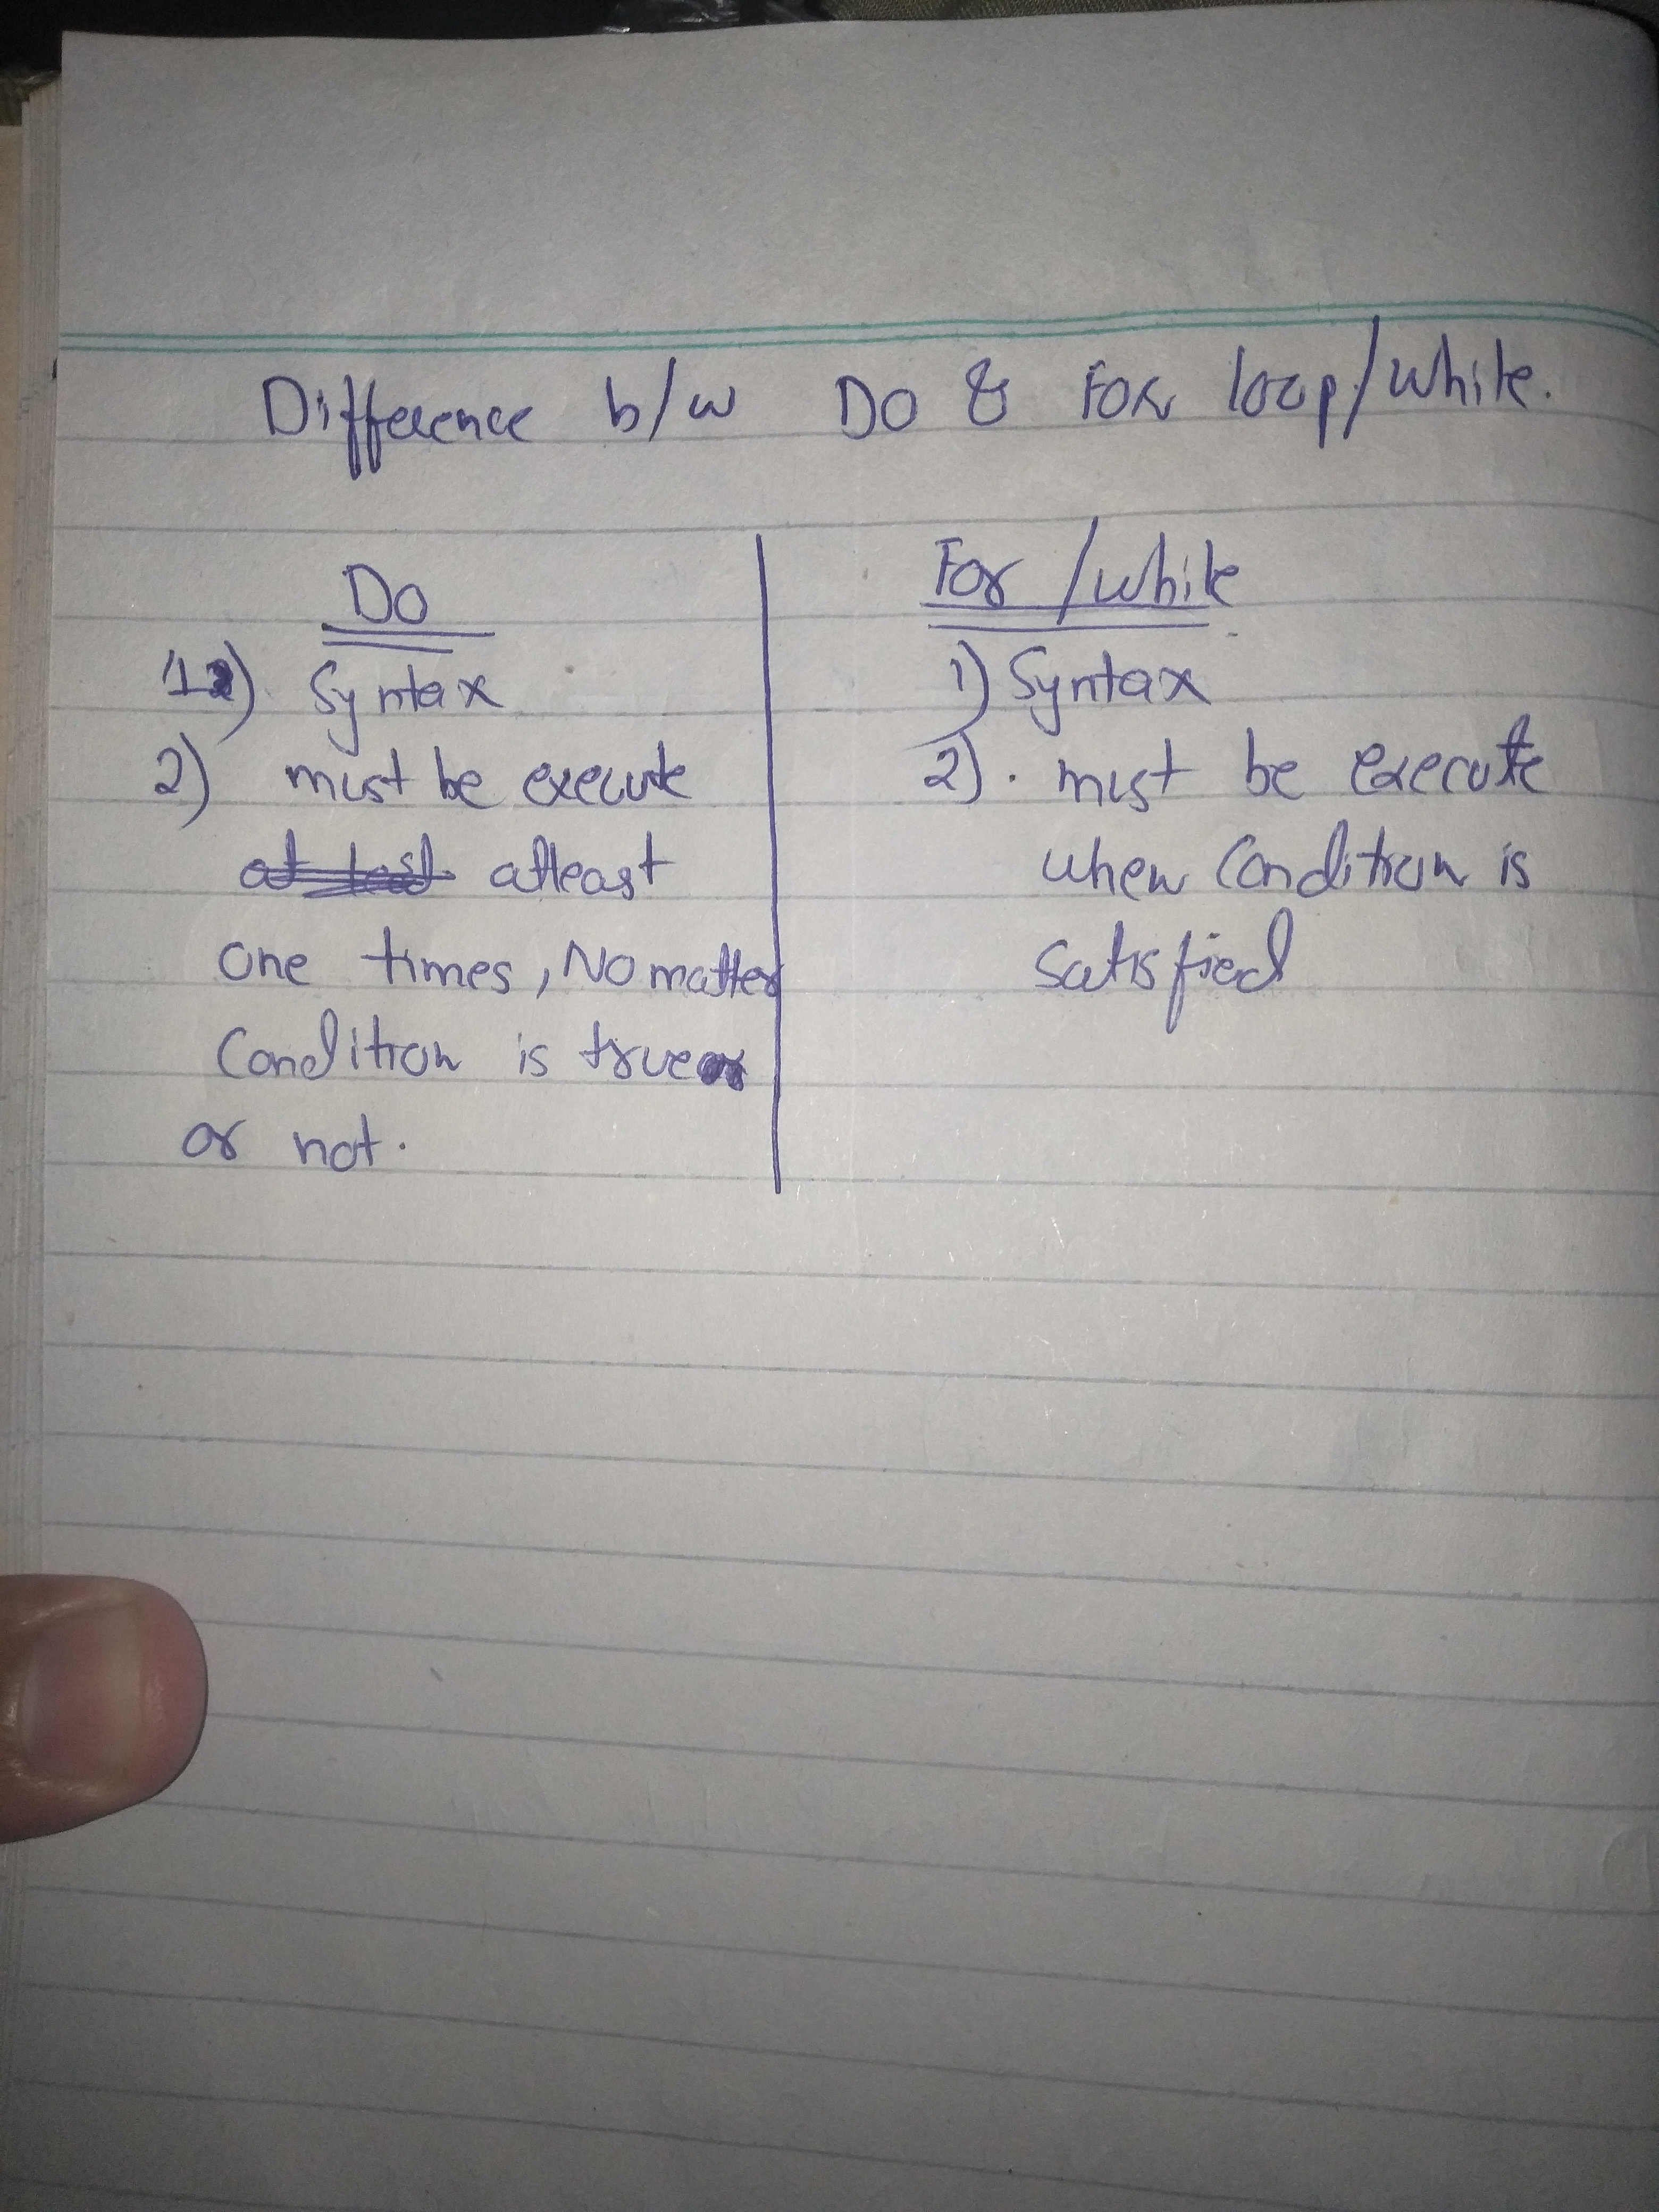 Difference b/w Do & For loop/while.
Do
For /while
1) Syntax
2) must be execute
atleast
one times, No matter
Condition is true
or not.
1) Syntax
2). must be execute
when Condition is
satisfied